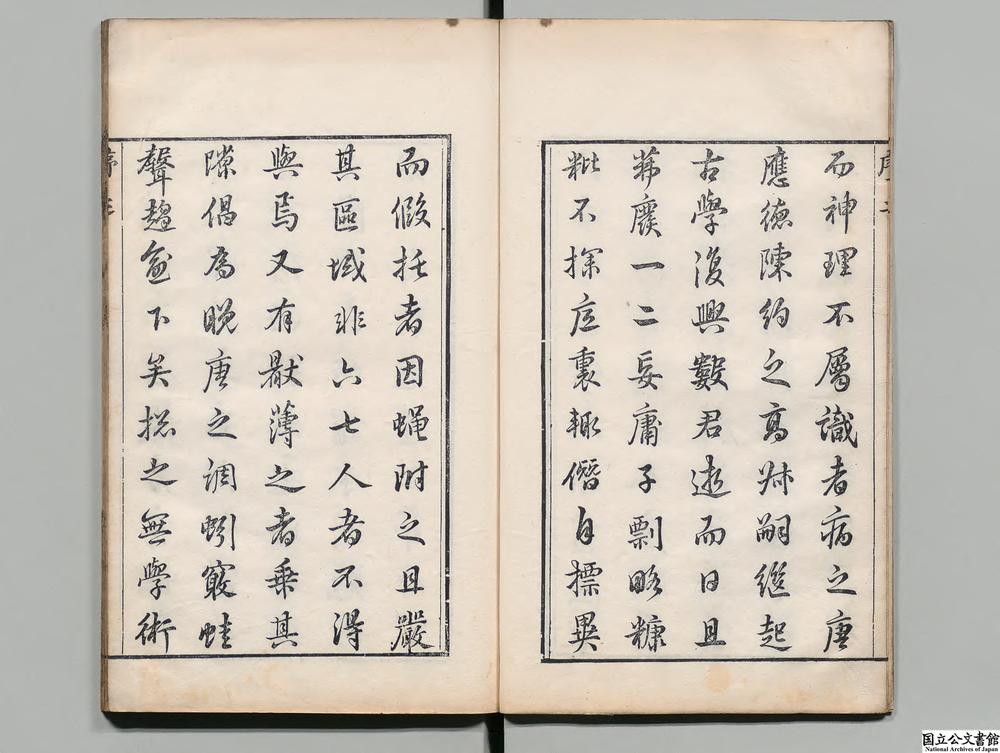 而神理不屬識者病之唐
應德陳約之高叔嗣繼起
古學復興數君逝而日且
茀廢一二妄庸子剽略糠
粃不探底裏輙僭自摽異
而假托者因蝇附之且嚴
其區域非六七人者不得
與焉又有厭薄之者乗其
隙倡為晚唐之調蚓竅蛙
聲趨益下矣揔之無學術
国立公文書館
National Archives of Japan